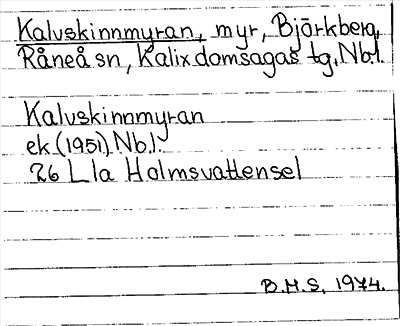 Kalvskinnmyran, myr, Björkberg,
Råneå sn, Kalix domsagas tg, Nb.l.
Kalvskinnmyran
ek. (1951) Nb.l.
26 L1a Holmsvattensel
B.H.S. 1974.